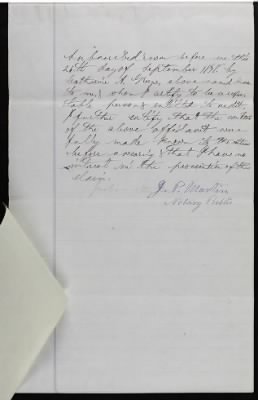 Subscribed & sworn before me this
26th day of September 1891 by
Catherine A. above named
to me & whom I certify to be a respec
table person & entitled to credit,
I further certify that the contents
of the above affidavit were
fully made known to
before swearing & that I have no
interest in the prosecution of this
claim.
J. P. Martin
Notary Public